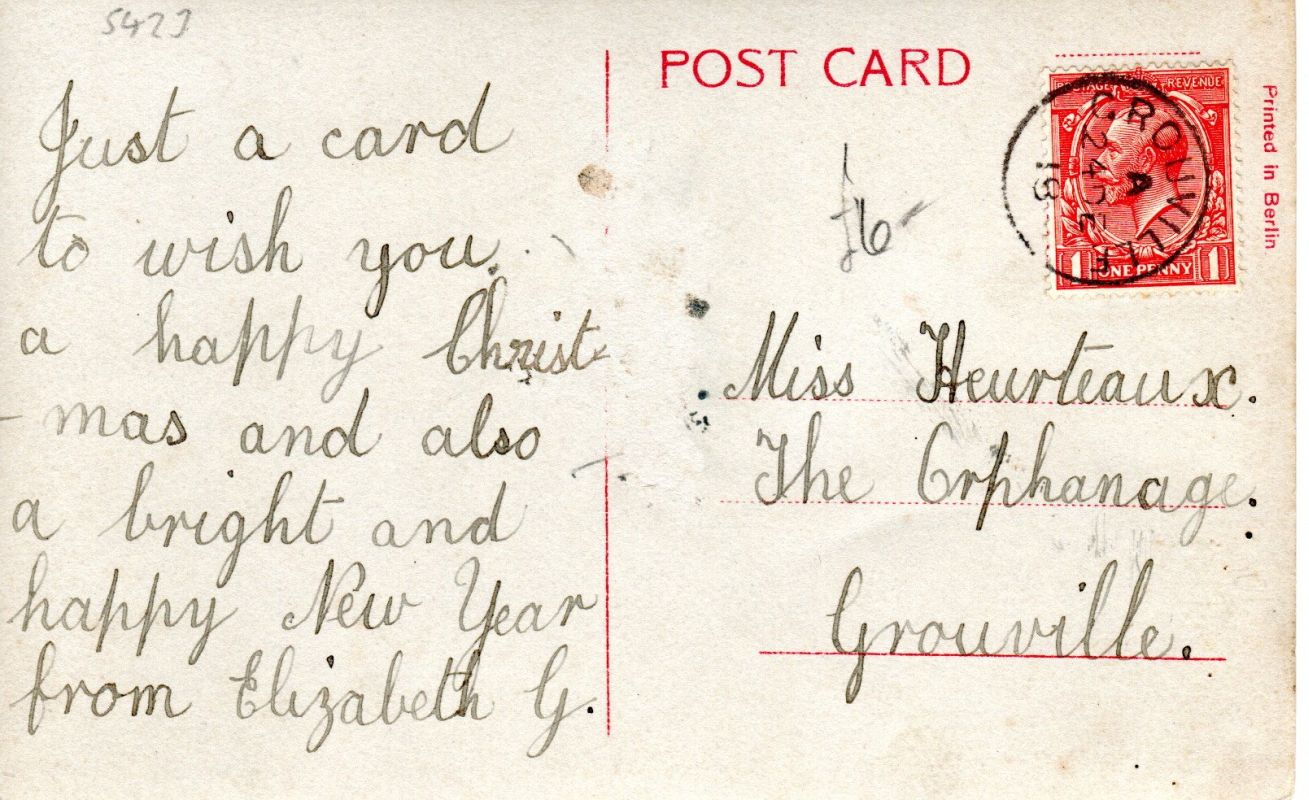 5423
Just a card
to wish you.
a happy Christ-
-mas and also
a bright and
happy New Year
from Elizabeth G.
POST CARD
£6-
POSTAGE REVENUE
1 ONE PENNY 1
GROUVILLE
A
24 DE
19
Printed in Berlin
Miss Heurteaux.
The Orphanage.
Grouville.